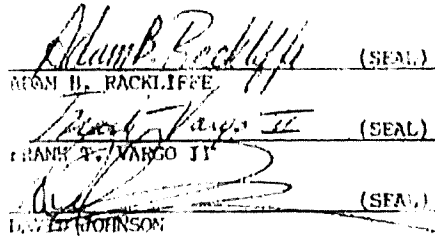 Adam B. Rackliffe (SEAL)
ADAM B. RACKLIFFE
Frank T. Vargo II (SEAL)
FRANK T. VARGO II
(SEAL)
DAVID JOHNSON